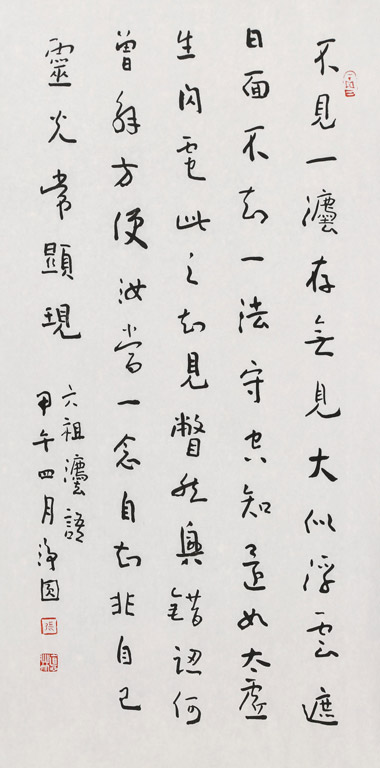 不見一灋存無見大似浮雲遮
日面不知一法守空知還如太虛
生閃電此之知見瞥然興錯認何
曾解方便汝當一念自知非自己
靈光常顯現
六祖灋語
甲午四月淨圓